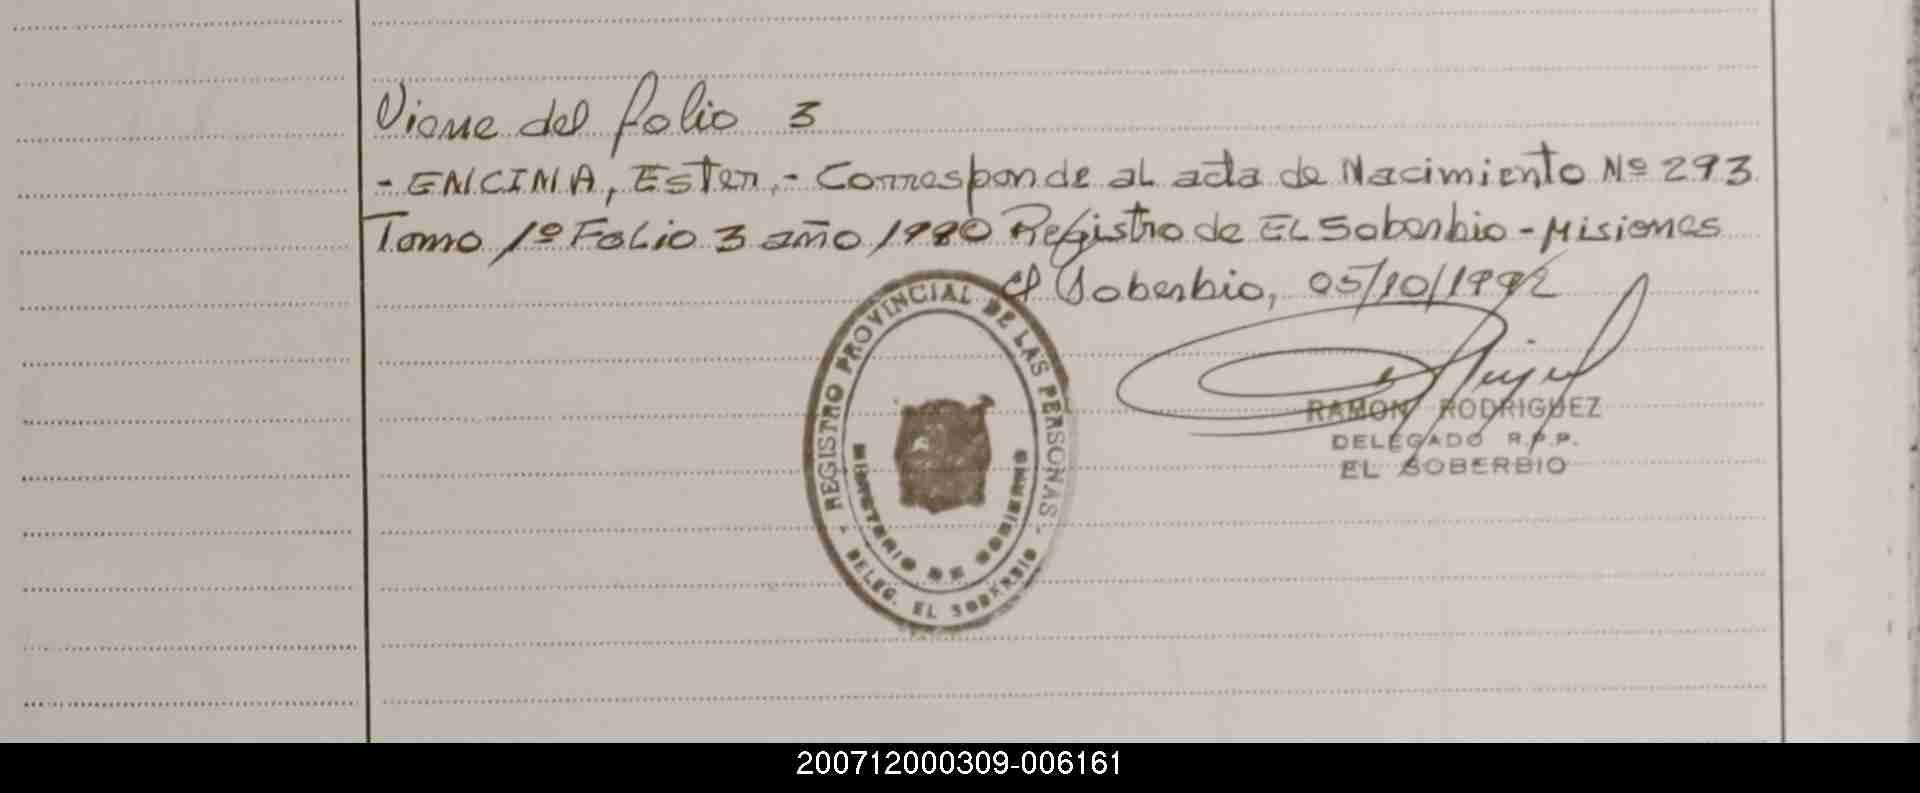 Viene del folio 3
- ENCINA, Ester.- Corresponde al acta de Nacimiento Nº 293
Tomo 1º Folio 3 año 1980 Registro de EL Soberbio - Misiones
El Soberbio, 05/10/1992
REGISTRO PROVINCIAL DE LAS PERSONAS
MINISTERIO DE GOBIERNO
DELEG. EL SOBERBIO
RAMON RODRIGUEZ
DELEGADO R.P.P.
EL SOBERBIO
200712000309-006161